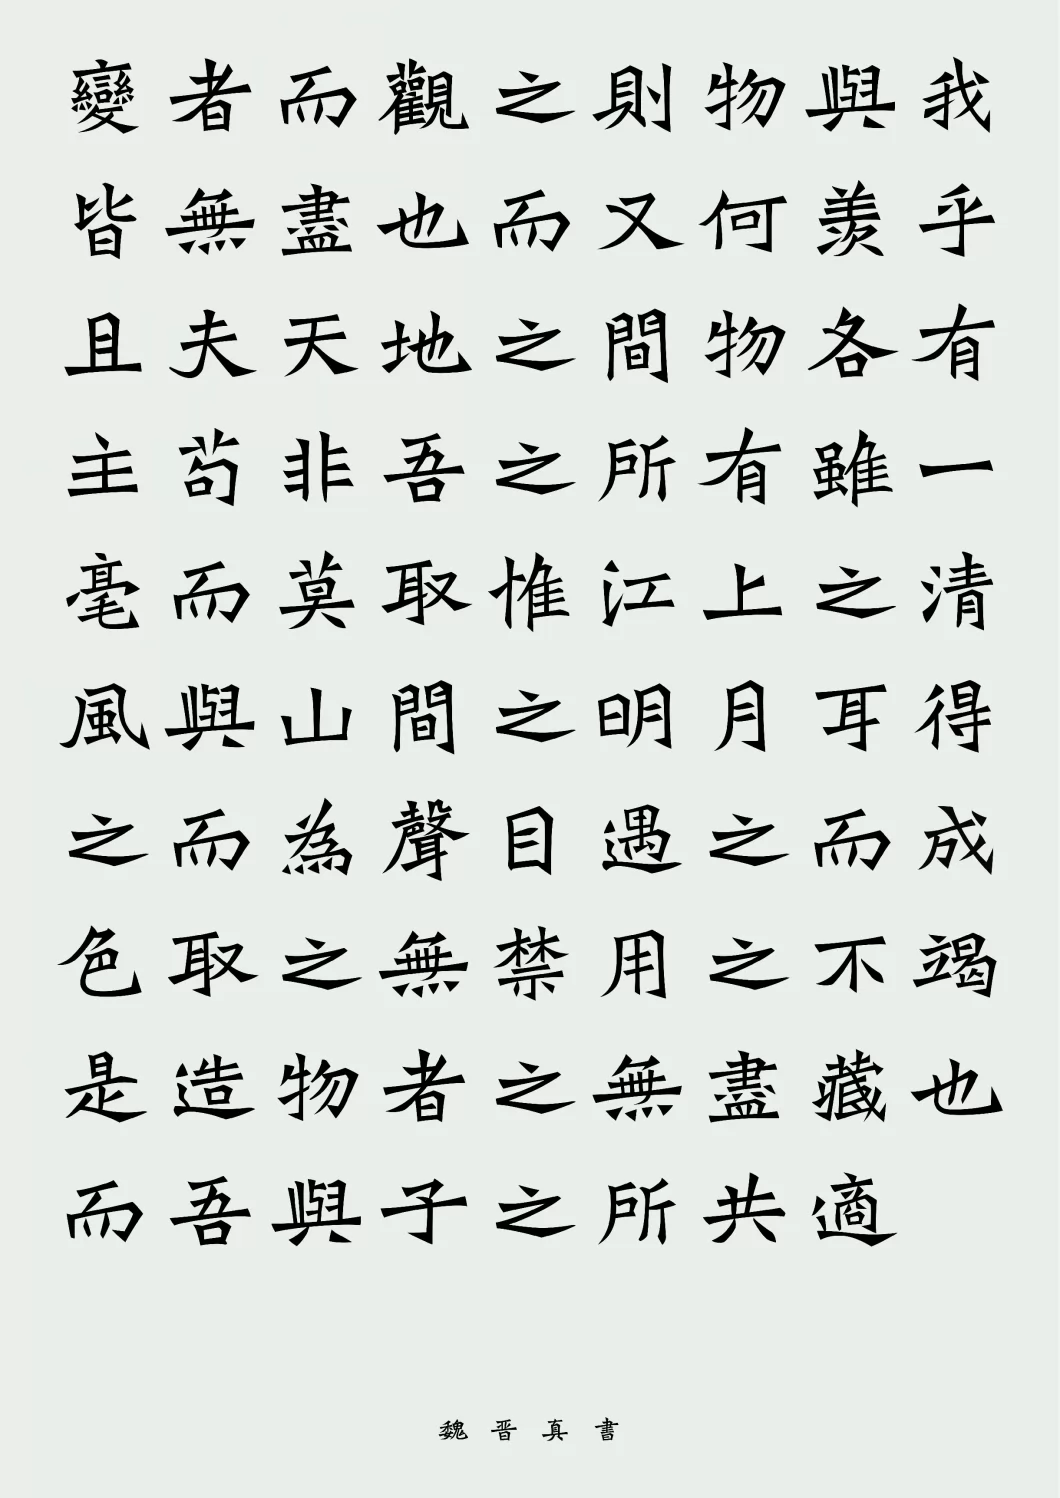 變者而觀之則物與我
皆無盡也而又何羨乎
且夫天地之間物各有
主苟非吾之所有雖一
毫而莫取惟江上之清
風與山間之明月耳得
之而為聲目遇之而成
色取之無禁用之不竭
是造物者之無盡藏也
而吾與子之所共適
魏晋真書